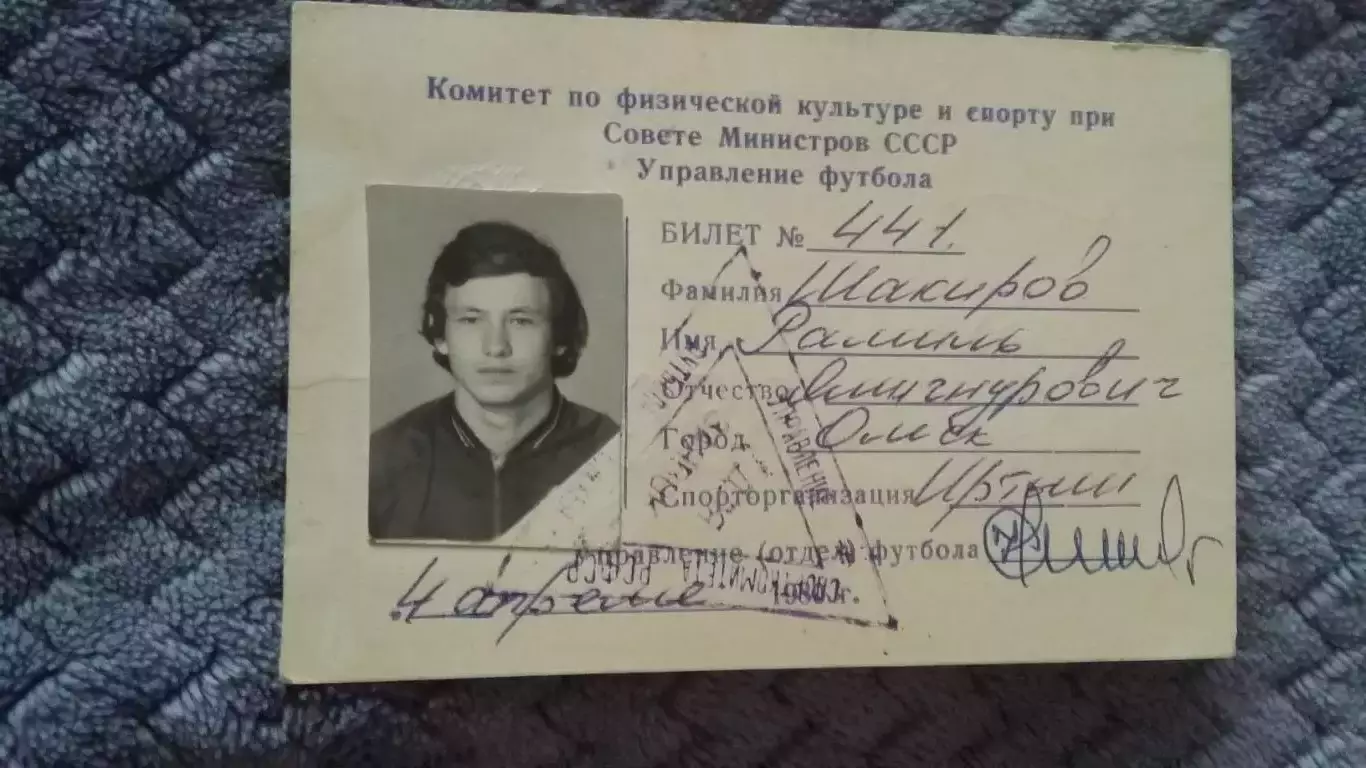 Комитет по физической культуре и спорту при
Совете Министров СССР
Управление футбола
БИЛЕТ № 441.
Фамилия Шакиров
Имя Рамиль
Отчество
Город Омск
Спорторганизация Иртыш
Управление (отдел) футбола
4 апреля 1980 г.
УПРАВЛЕНИЕ
СПОРТКОМИТЕТА РСФСР